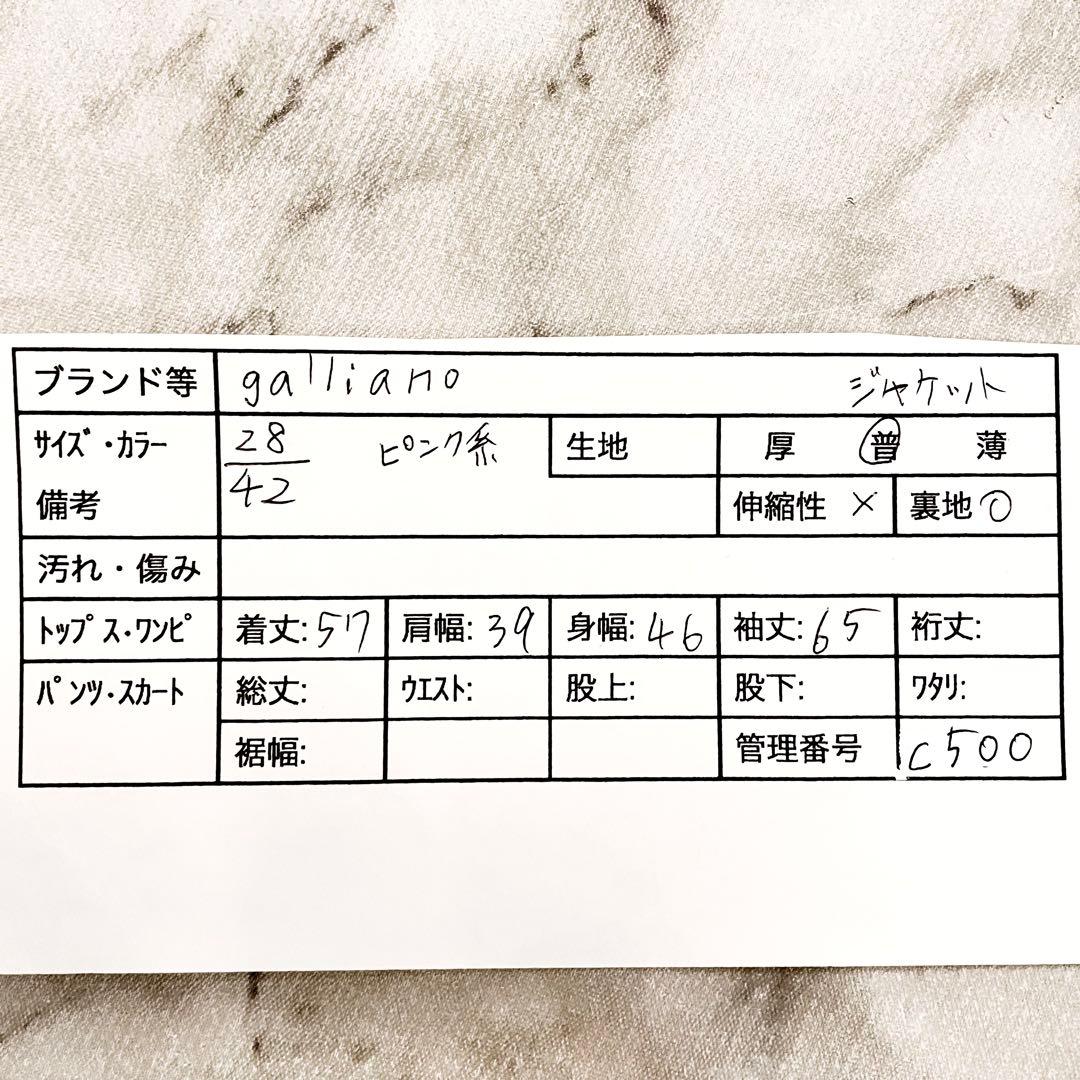 ブランド等 galliano ジャケット
サイズ・カラー 28 ピンク系 生地 厚 普 薄
備考 42 伸縮性 × 裏地 ○
汚れ・傷み
トップス・ワンピ 着丈:57 肩幅:39 身幅:46 袖丈:65 裄丈:
パンツ・スカート 総丈: ウエスト: 股上: 股下: ワタリ:
裾幅: 管理番号 c500